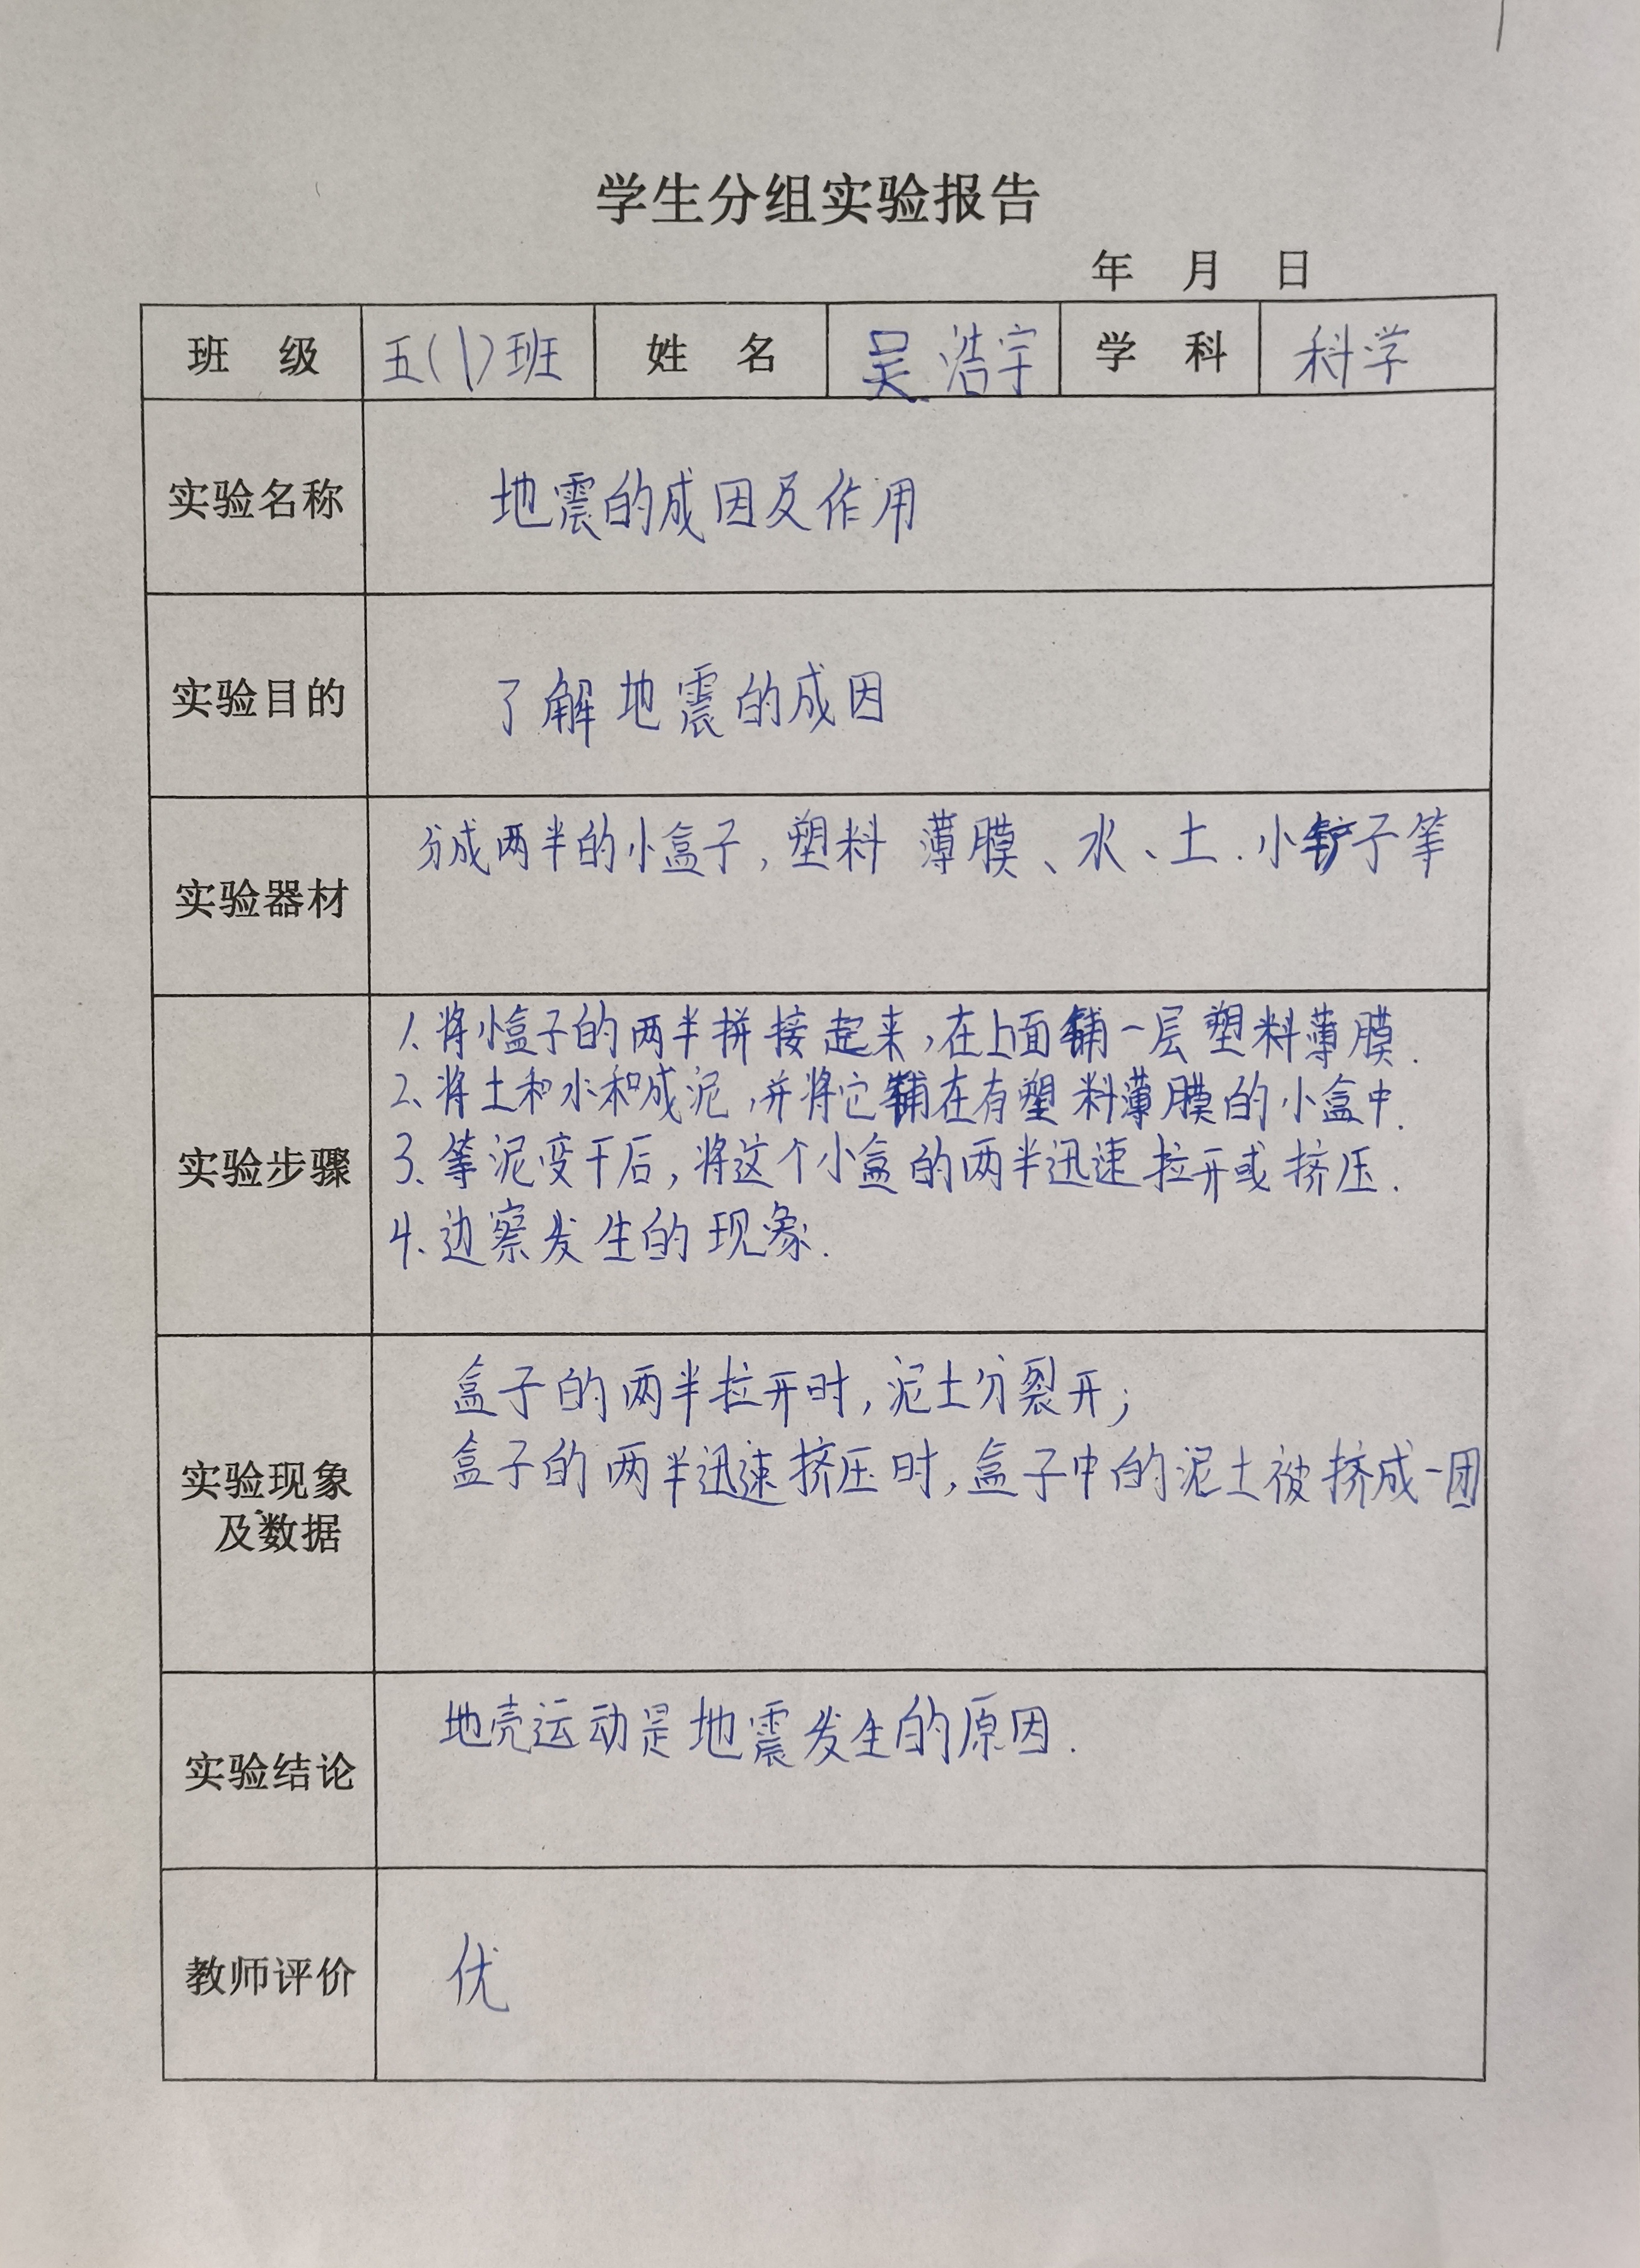 学生分组实验报告
年 月 日
班 级 五(1)班 姓 名 吴浩宇 学 科 科学
实验名称 地震的成因及作用
实验目的 了解地震的成因
实验器材 分成两半的小盒子,塑料薄膜、水、土.小铲子等
实验步骤
1.将小盒子的两半拼接起来,在上面铺一层塑料薄膜.
2、将土和水和成泥,并将它铺在有塑料薄膜的小盒中.
3、等泥变干后,将这个小盒的两半迅速拉开或挤压.
4.边察发生的现象.
实验现象
及数据
盒子的两半拉开时,泥土分裂开;
盒子的两半迅速挤压时,盒子中的泥土被挤成一团
实验结论 地壳运动是地震发生的原因.
教师评价 优